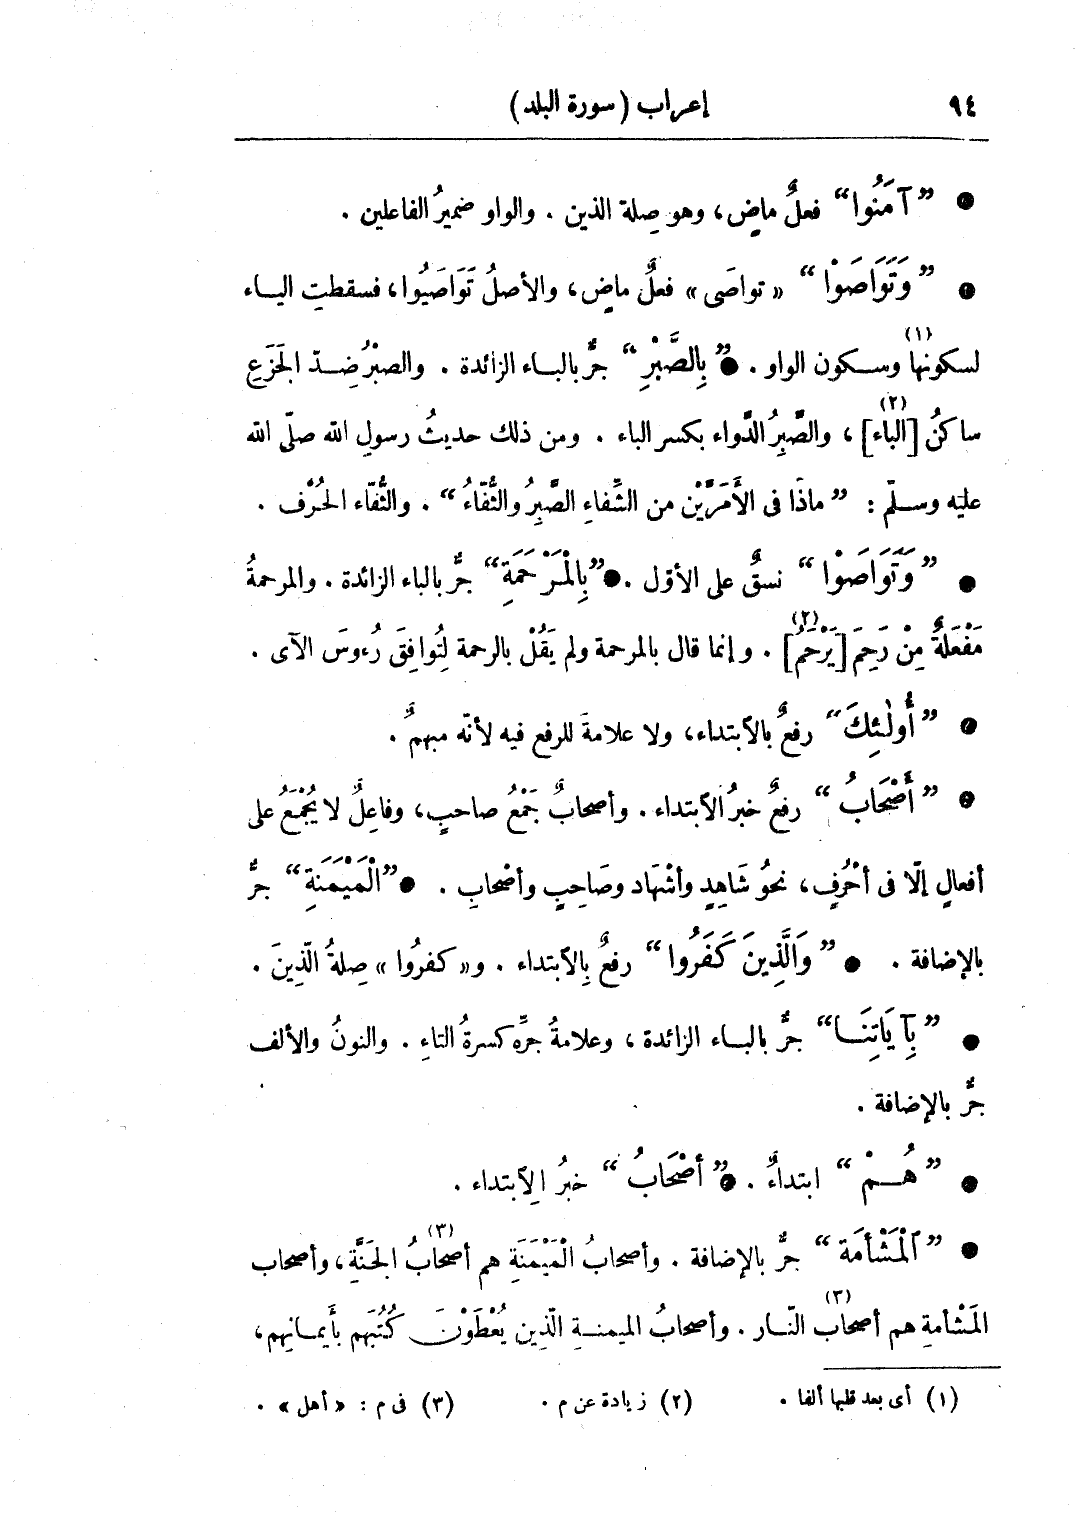 ٩٤ إعراب (سورة البلد)
● ”آمَنُوا“ فعلٌ ماضٍ، وهو صِلة الذين . والواو ضميرُ الفاعلين .
● ”وَتَوَاصَوْا“ «تواصَى» فعلٌ ماضٍ، والأصلُ تَوَاصَيُوا، فسقطتِ اليـاء
لسكونها(١) وسـكون الواو . ● ”بِالصَّبْرِ“ جرٌّ بالبـاء الزائدة . والصبْرُ ضِـدّ الجَزَعِ
ساكنُ [الباء](٢)، والصَّبِرُ الدَّواء بكسر الباء . ومن ذلك حديثُ رسولِ الله صلّى الله
عليه وسـلّم : ”ماذَا فى الأَمَرَّيْن من الشِّفاءِ الصَّبِرُ والثُّفّاءُ“ . والثُّفّاء الحُرْف .
● ”وَتَوَاصَوْا“ نسقٌ على الأوّل . ● ”بِالْمَرْحَمَةِ“ جرٌّ بالباء الزائدة . والمرحمةُ
مَفْعَلةٌ مِنْ رَحِمَ [يَرْحَمُ](٢) . وإنما قال بالمرحمة ولم يَقُلْ بالرحمة لِتُوافِقَ رُءوسَ الآى .
● ”أُولٰئِكَ“ رفعٌ بالآبتداء، ولا علامةَ للرفع فيه لأنّه مبهمٌ .
● ”أَصْحَابُ“ رفعٌ خبرُ الآبتداء . وأصحابٌ جَمْعُ صاحبٍ، وفاعِلٌ لا يُجْمَعُ على
أفعالٍ إلّا فى أحْرُفٍ، نحوُ شَاهِدٍ وأشْهَاد وصَاحِبٍ وأصْحابِ . ● ”الْمَيْمَنَةِ“ جرٌّ
بالإضافة . ● ”وَالَّذِينَ كَفَرُوا“ رفعٌ بِالآبتداء . و«كفرُوا» صِلةُ الّذِينَ .
● ”بِآيَاتِنَـا“ جرٌّ بالبـاء الزائدة، وعلامةُ جرِّه كسرةُ التاءِ . والنونُ والألف
جرٌّ بالإضافة .
● ”هُـمْ“ ابتداءٌ . ● ”أصْحَابُ“ خبرُ الآبتداء .
● ”ٱلْمَشْأَمَة“ جرٌّ بالإضافة . وأصحابُ الْمَيْمَنَةِ هم أصحابُ(٣) الجَنَّةِ، وأصحاب
المَشْأمةِ هم أصحاب(٣) النّـار . وأصحابُ الميمنـةِ الّذين يُعْطَوْنَ كُتُبَهم بأَيمـانِهم،
(١) أى بعد قلبها ألفا . (٢) زيادة عن م . (٣) فى م : «أهل» .